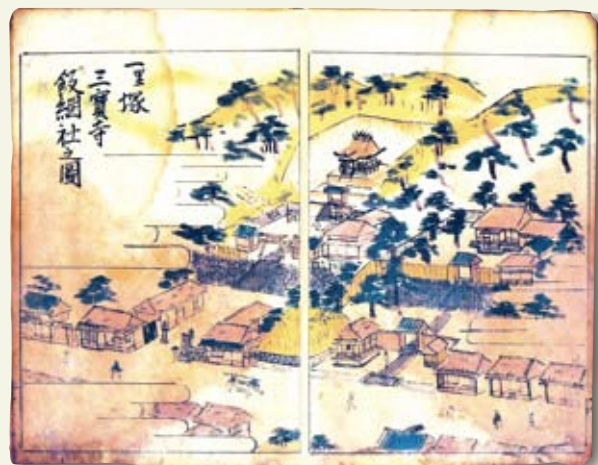 一里塚
三寶寺
飯綱社之圖